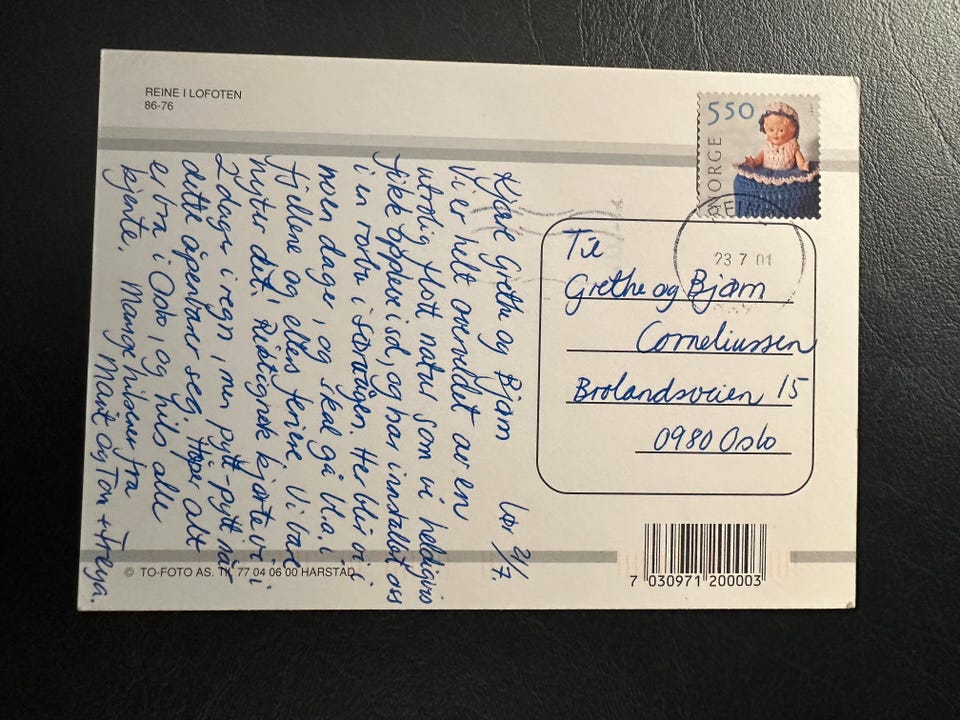 REINE I LOFOTEN
86-76
5 50
NORGE
REINE
23 7 01
Lør 21/7
Kjære Grethe og Bjørn
Vi er helt overveldet av en
utrolig flott natur som vi heldigvis
fikk oppleve i sol, og har innstalert oss
i en rorbu i Sørvågen. Her blir vi i
noen dager, og skal gå bl.a. i
fjellene og ellers feriere. Vi var
hyter dit. Riktignok kjørte vi i
2 dager i regn, men pytt-pytt når
dette åpenbarer seg. Håper alt
er bra i Oslo, og hils alle
kjente. Mange hilsener fra
Marit og Tor + Freya.
Til
Grethe og Bjørn
Corneliussen
Brolandsveien 15
0980 Oslo
© TO-FOTO AS. Tlf. 77 04 06 00 HARSTAD
7 030971 200003